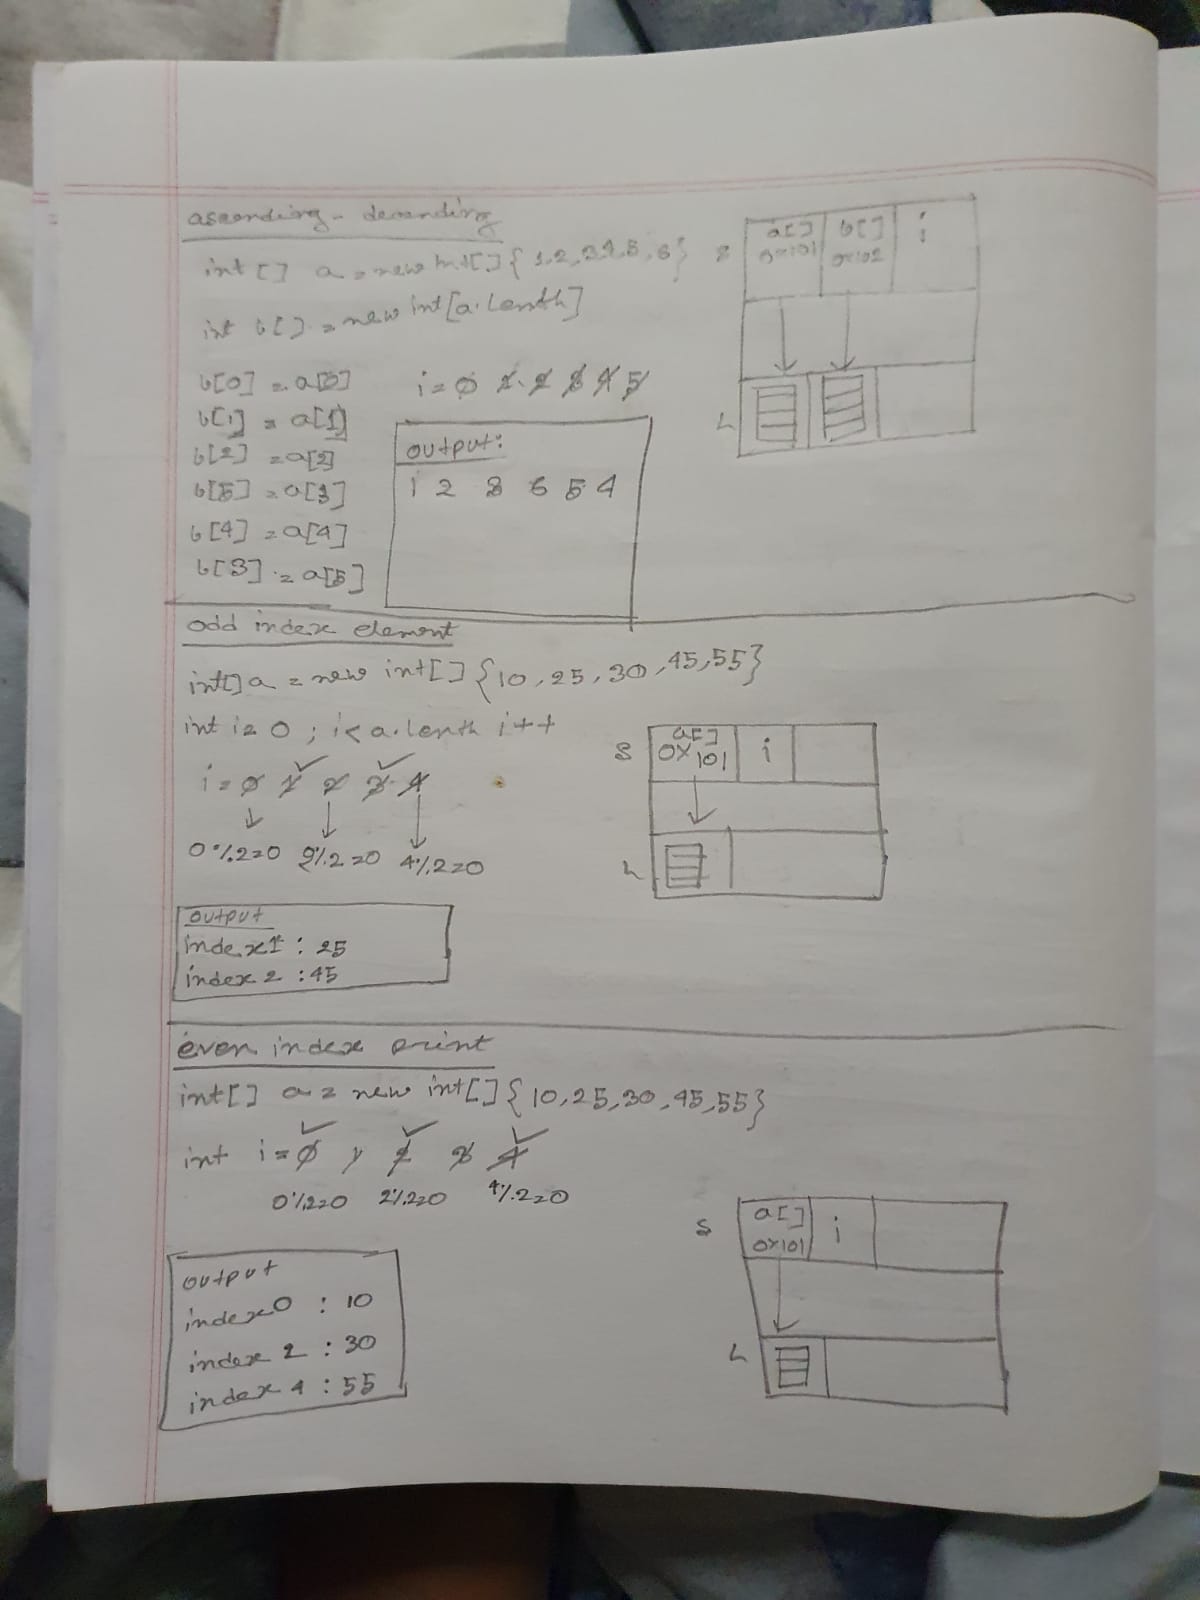 ascending - decending
int [] a = new int[] { 1,2,3,4,5,6}
int b[] = new int[a.lenth]
b[0] = a[0]
i = 0 1 2 3 4 5
b[1] = a[1]
b[2] = a[2]
b[5] = a[3]
b[4] = a[4]
b[3] = a[5]
output:
1 2 3 6 5 4
S
a[] b[] i
0x101 0x102
L
odd index element
int[] a = new int[] {10,25,30,45,55}
int i=0 ; i< a.lenth i++
i=0 1 2 3 4
0%2=0 2%2=0 4%2=0
S
a[] i
0x101
L
output
index1 : 25
index 2 : 45
even index print
int[] a = new int[] { 10,25,30,45,55}
int i = 0 1 2 3 4
0%2=0 2%2=0 4%2=0
S
a[] i
0x101
L
output
index0 : 10
index 2 : 30
index 4 : 55